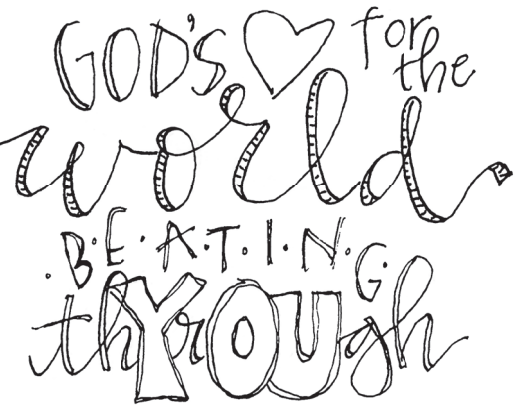 GOD'S ♡ for
the
world
·B·E·A·T·I·N·G
thYrOUgh